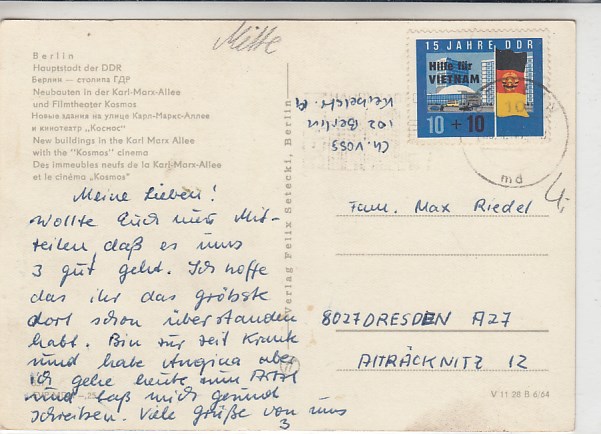 Mitte
Berlin
Hauptstadt der DDR
Берлин — столица ГДР
Neubauten in der Karl-Marx-Allee
und Filmtheater Kosmos
Новые здания на улице Карл-Маркс-Аллее
и кинотеатр „Космос“
New buildings in the Karl Marx Allee
with the "Kosmos" cinema
Des immeubles neufs de la Karl-Marx-Allee
et le cinéma „Kosmos“
Meine Lieben!
Wollte Euch nur Mit-
teilen, daß es uns
3 gut geht. Ich hoffe
das ihr das gröbste
dort schon überstanden
habt. Bin zur Zeit Krank
und habe Angina aber
ich gehe heute zum Arzt
und laß mich gesund
schreiben. Viele Grüße von uns
3
Verlag Felix Setecki, Berlin
Ch. Voss
102 Berlin
15 JAHRE DDR
Hilfe für
VIETNAM
10 + 10
Fam. Max Riedel
8027 DRESDEN A27
ALTRÄCKNITZ 12
V 11 28 B 6/64